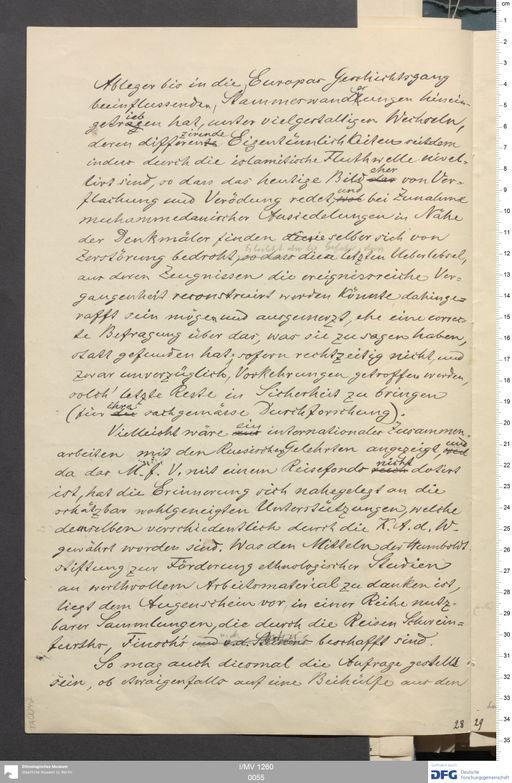 Ableger bis in die, Europas Geschichtsgang
beeinflussenden, Stammeswandlungen hinein-
getragen hat, unter vielgestaltigen Wechseln,
deren differenzirende Eigentümlichkeiten seitdem
indess durch die islamitische Fluthwelle nivel-
lirt sind, so dass das heutige Bild eher von Ver-
flachung und Verödung redet, und bei Zunahme
muhammedanischer Ansiedelungen in Nähe
der Denkmäler finden diese selber sich von
Zerstörung bedroht, so dass die letzten Ueberlebsel,
aus deren Zeugnissen die ereignissreiche Ver-
gangenheit reconstruirt werden könnte dahinge-
rafft sein mögen und ausgemerzt, ehe eine correc-
te Befragung über das, was sie zu sagen haben,
statt gefunden hat, sofern rechtzeitig nicht, und
zwar unverzüglich, Vorkehrungen getroffen werden,
solch' letzte Reste in Sicherheit zu bringen
(für ihre sachgemässe Durchforschung).
Vielleicht wäre ein internationales Zusammen-
arbeiten mit den Russischen Gelehrten angezeigt, und
da das M. f. V. mit einem Reisefonds nicht dotirt
ist, hat die Erinnerung sich nahegelegt an die
schätzbar wohlgeneigten Unterstützungen, welche
demselben verschiedentlich durch die K. A. d. W.
gewährt worden sind. Was den Mitteln der Humboldt
stiftung zur Förderung ethnologischer Studien
an werthvollem Arbeitsmaterial zu danken ist,
liegt dem Augenschein vor, in einer Reihe nutz-
barer Sammlungen, die durch die Reisen Schwein-
furths, Finschs beschafft sind.
So mag auch diesmal die Anfrage gestellt
sein, ob etwaigenfalls auf eine Beihülfe aus den
28 29
Ethnologisches Museum
Staatliche Museen zu Berlin
I/MV 1260
0055
DFG Deutsche
Forschungsgemeinschaft